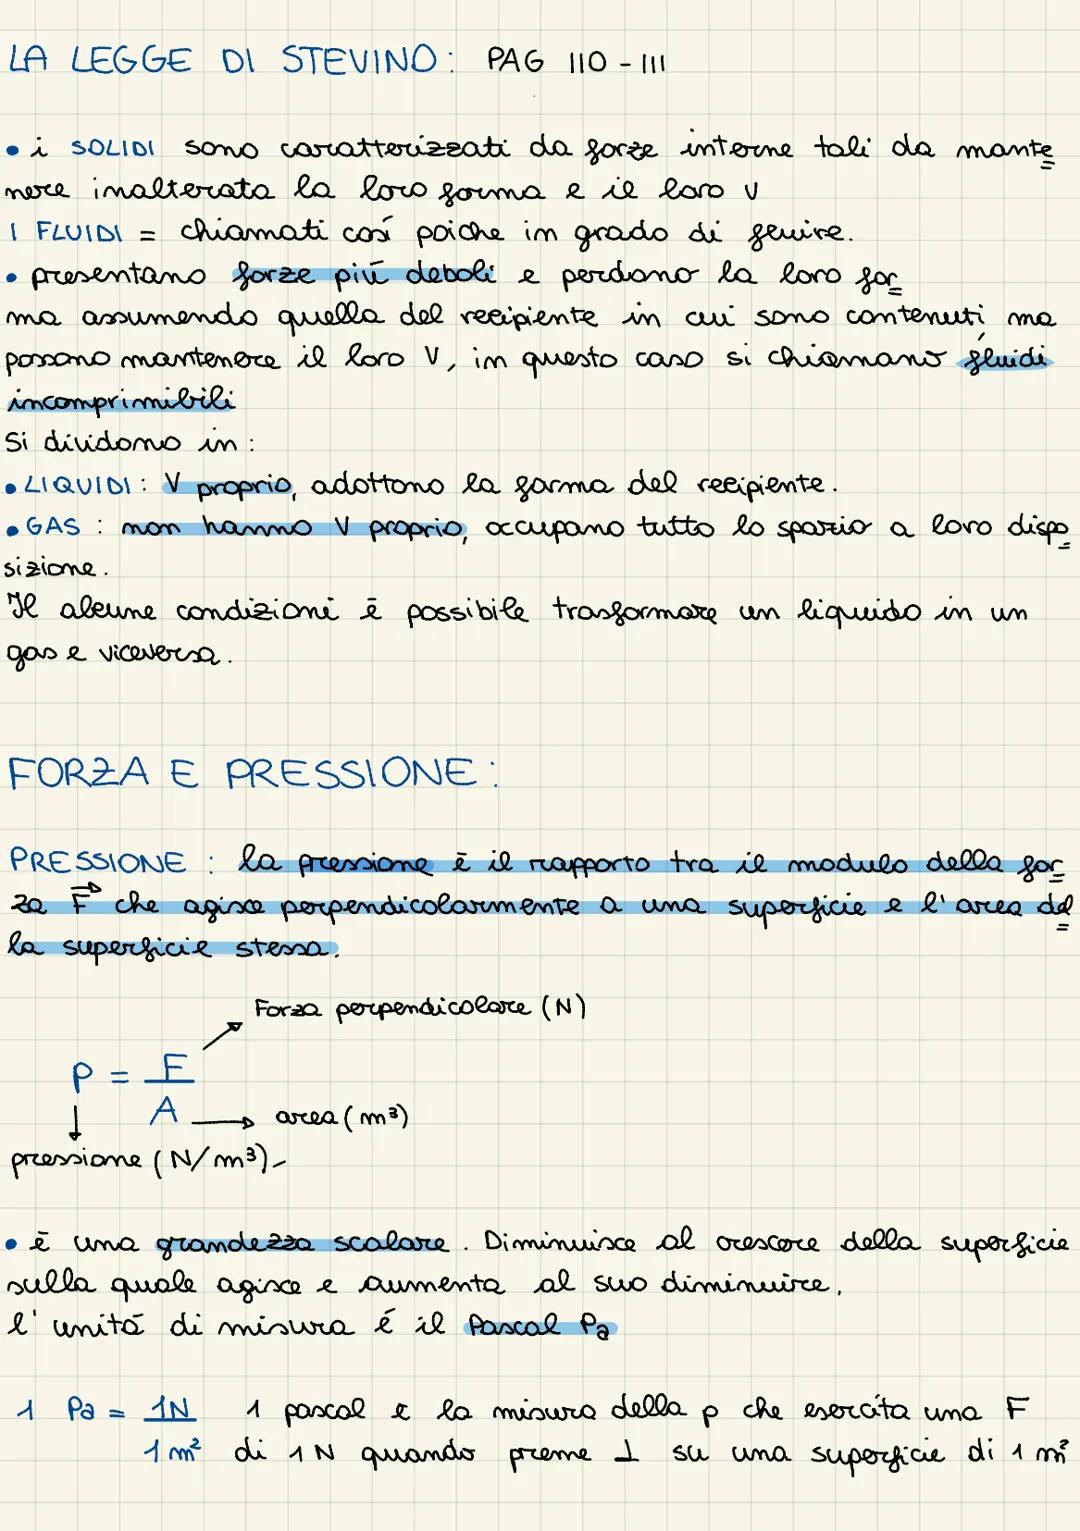 LA LEGGE DI STEVINO: PAG 110 - 111
• i SOLIDI sono caratterizzati da forze interne tali da mante
nere inalterata la loro forma e il loro v
I FLUIDI = chiamati così poiche in grado di fluire.
• presentano forze più deboli e perdono la loro for
ma assumendo quella del recipiente in cui sono contenuti, ma
possono mantenere il loro V, in questo caso si chiamano fluidi
incomprimibili
Si dividono in:
• LIQUIDI: V proprio, adottano la forma del recipiente.
• GAS : non hanno V proprio, occupano tutto lo spazio a loro dispo
sizione.
Il alcune condizioni è possibile trasformare un liquido in un
gas e viceversa.
FORZA E PRESSIONE:
PRESSIONE : la pressione è il rapporto tra il modulo della for
za F⃗ che agisce perpendicolarmente a una superficie e l'area del
la superficie stessa.
Forza perpendicolare (N)
p = F
A → area (m³)
pressione (N/m³)-
• è una grandezza scalare. Diminuisce al crescere della superficie
sulla quale agisce e aumenta al suo diminuire,
l'unità di misura é il Pascal Pa
1 Pa = 1N 1 pascal e la misura della p che esercita una F
1 m² di 1 N quando preme ⊥ su una superficie di 1 m²